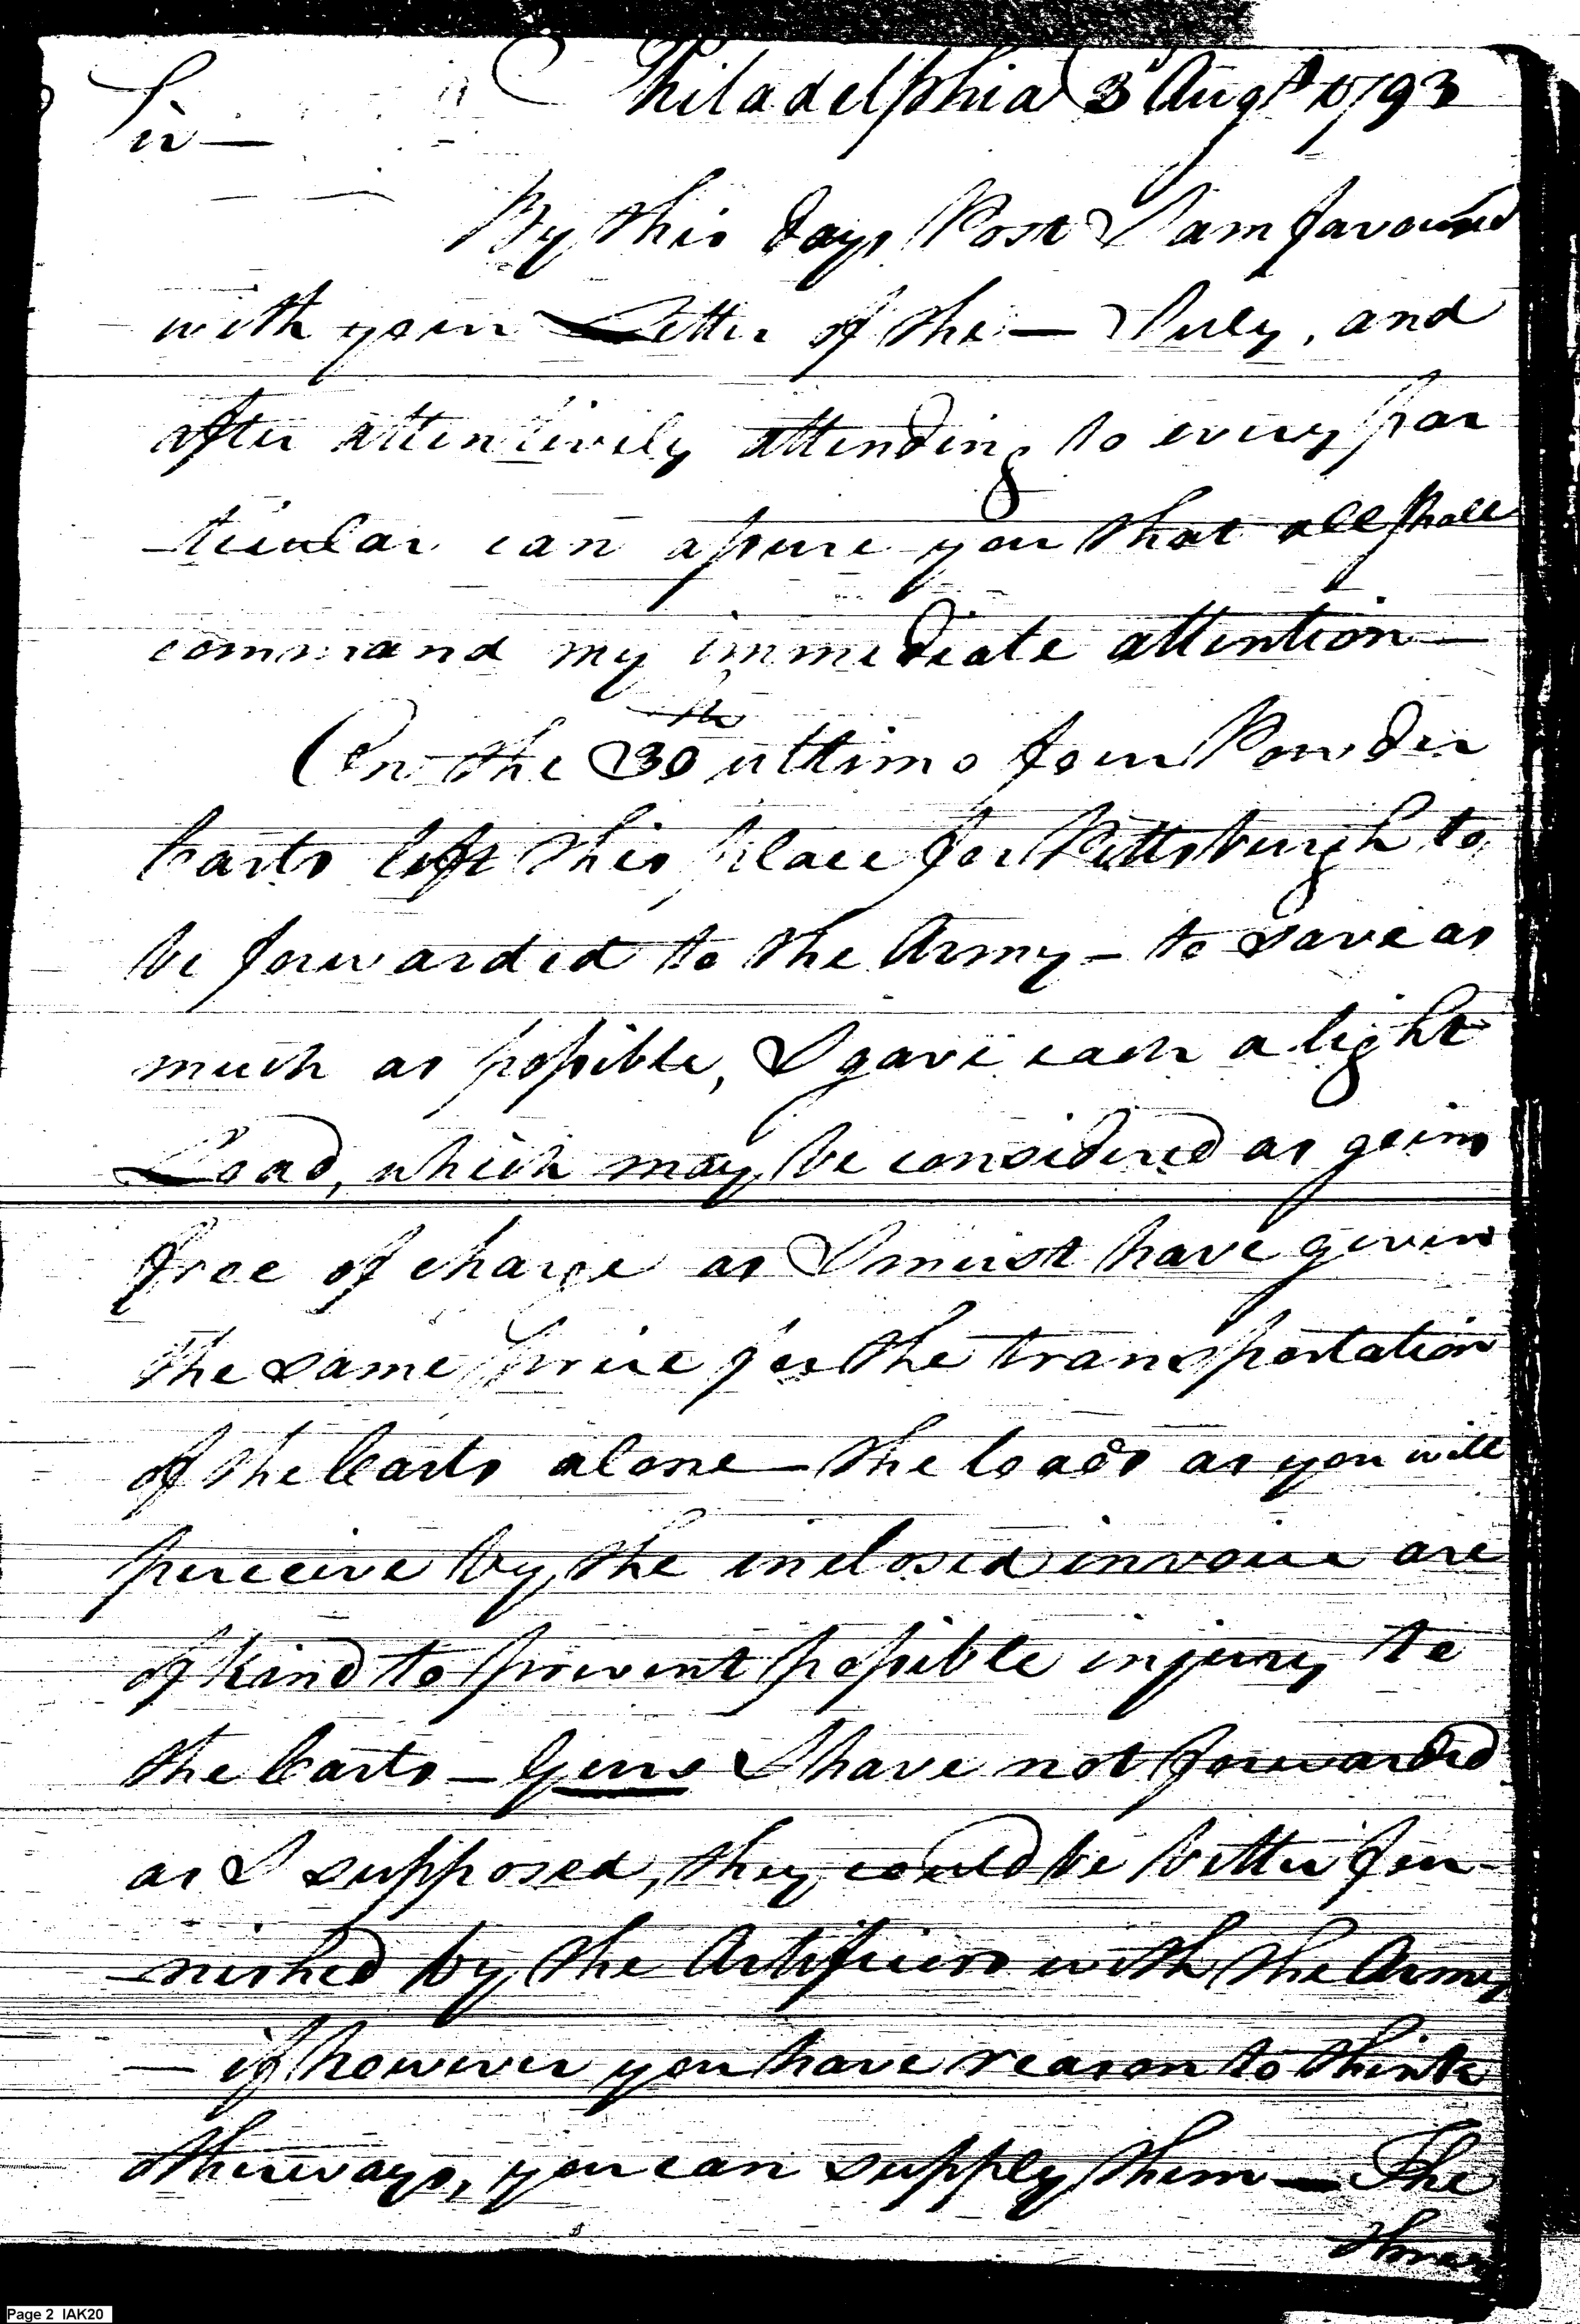 Philadelphia 3d Augt 1793
Sir —
By this days Post I am favoured
with your Letter of the — July, and
after attentively attending to every par
-ticular can assure you that all shall
command my immediate attention —
On the 30th ultimo four Powder
Carts left this place for Pittsburgh to
be forwarded to the Army – to save as
much as possible, I gave each a light
Load, which may be considered as going
free of charge as I must have given
the same price for the transportation
of the Carts alone – the loads as you will
perceive by the inclosed invoice are
of kind to prevent possible injury to
the Carts – Gins I have not forwarded
as I supposed, they could be better fur-
-nished by the Artificers with the Army
– if however you have reason to think
otherways, you can supply them — The
Page 2 IAK20